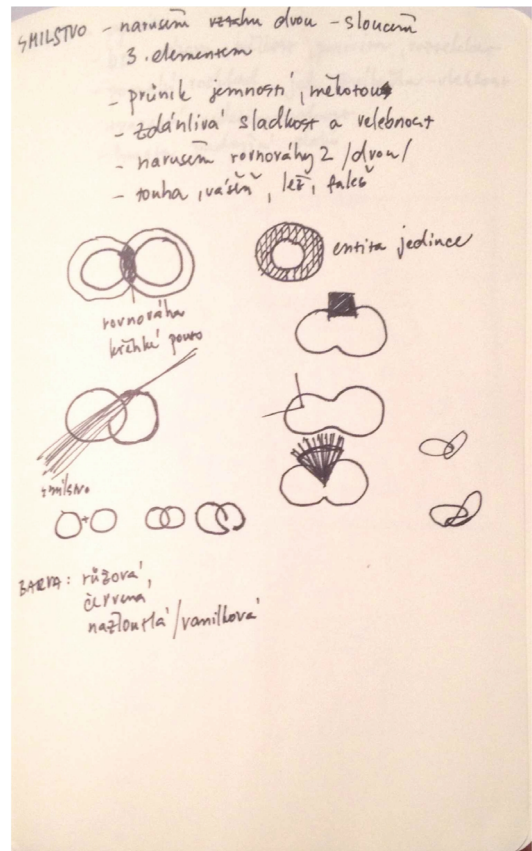 SMILSTVO - narušení vztahu dvou - sloučení
3. elementem
- průnik jemností, měkotou
- zdánlivá sladkost a velebnost
- narušení rovnováhy 2 /dvou/
- touha, vášeň, lež, faleš
entita jedince
rovnováha
křehké pouto
smilstvo
BARVA: růžová,
červená
nažloutlá/vanilková